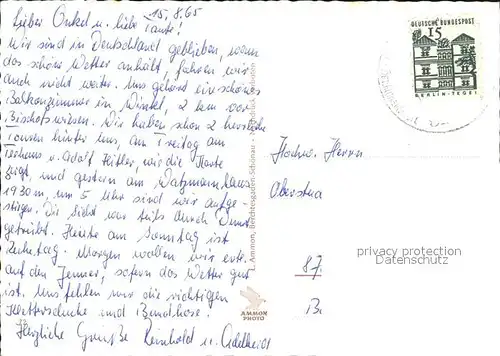 15.8.65
Lieber Onkel u. liebe Tante!
Wir sind in Deutschland geblieben, wenn
das schöne Wetter anhält, fahren wir
auch nicht weiter. Uns gehört ein schönes
Balkonzimmer in Winkel, 2 km vor
Bischofswiesen. Wir haben schon 2 herrliche
Touren hinter uns, am Freitag am
u. Adolf Hitler, wie die Karte
zeigt, und gestern am Watzmannhaus
1930 m, um 5 Uhr sind wir aufge-
stiegen. Die Sicht war teils durch Dunst
getrübt. Heute am Sonntag ist
Ruhetag. Morgen wollen wir evt.
auf den Jenner, sofern das Wetter gut
ist. Uns fehlen nur die richtigen
Kletterschuhe und Bundhose.
Herzliche Grüße Reinhold u. Adelheid
L. Ammon, Berchtesgaden-Schönau
AMMON
PHOTO
DEUTSCHE BUNDESPOST
15
BERLIN-TEGEL
Hochw. Herrn
Oberstud
87
privacy protection
Datenschutz